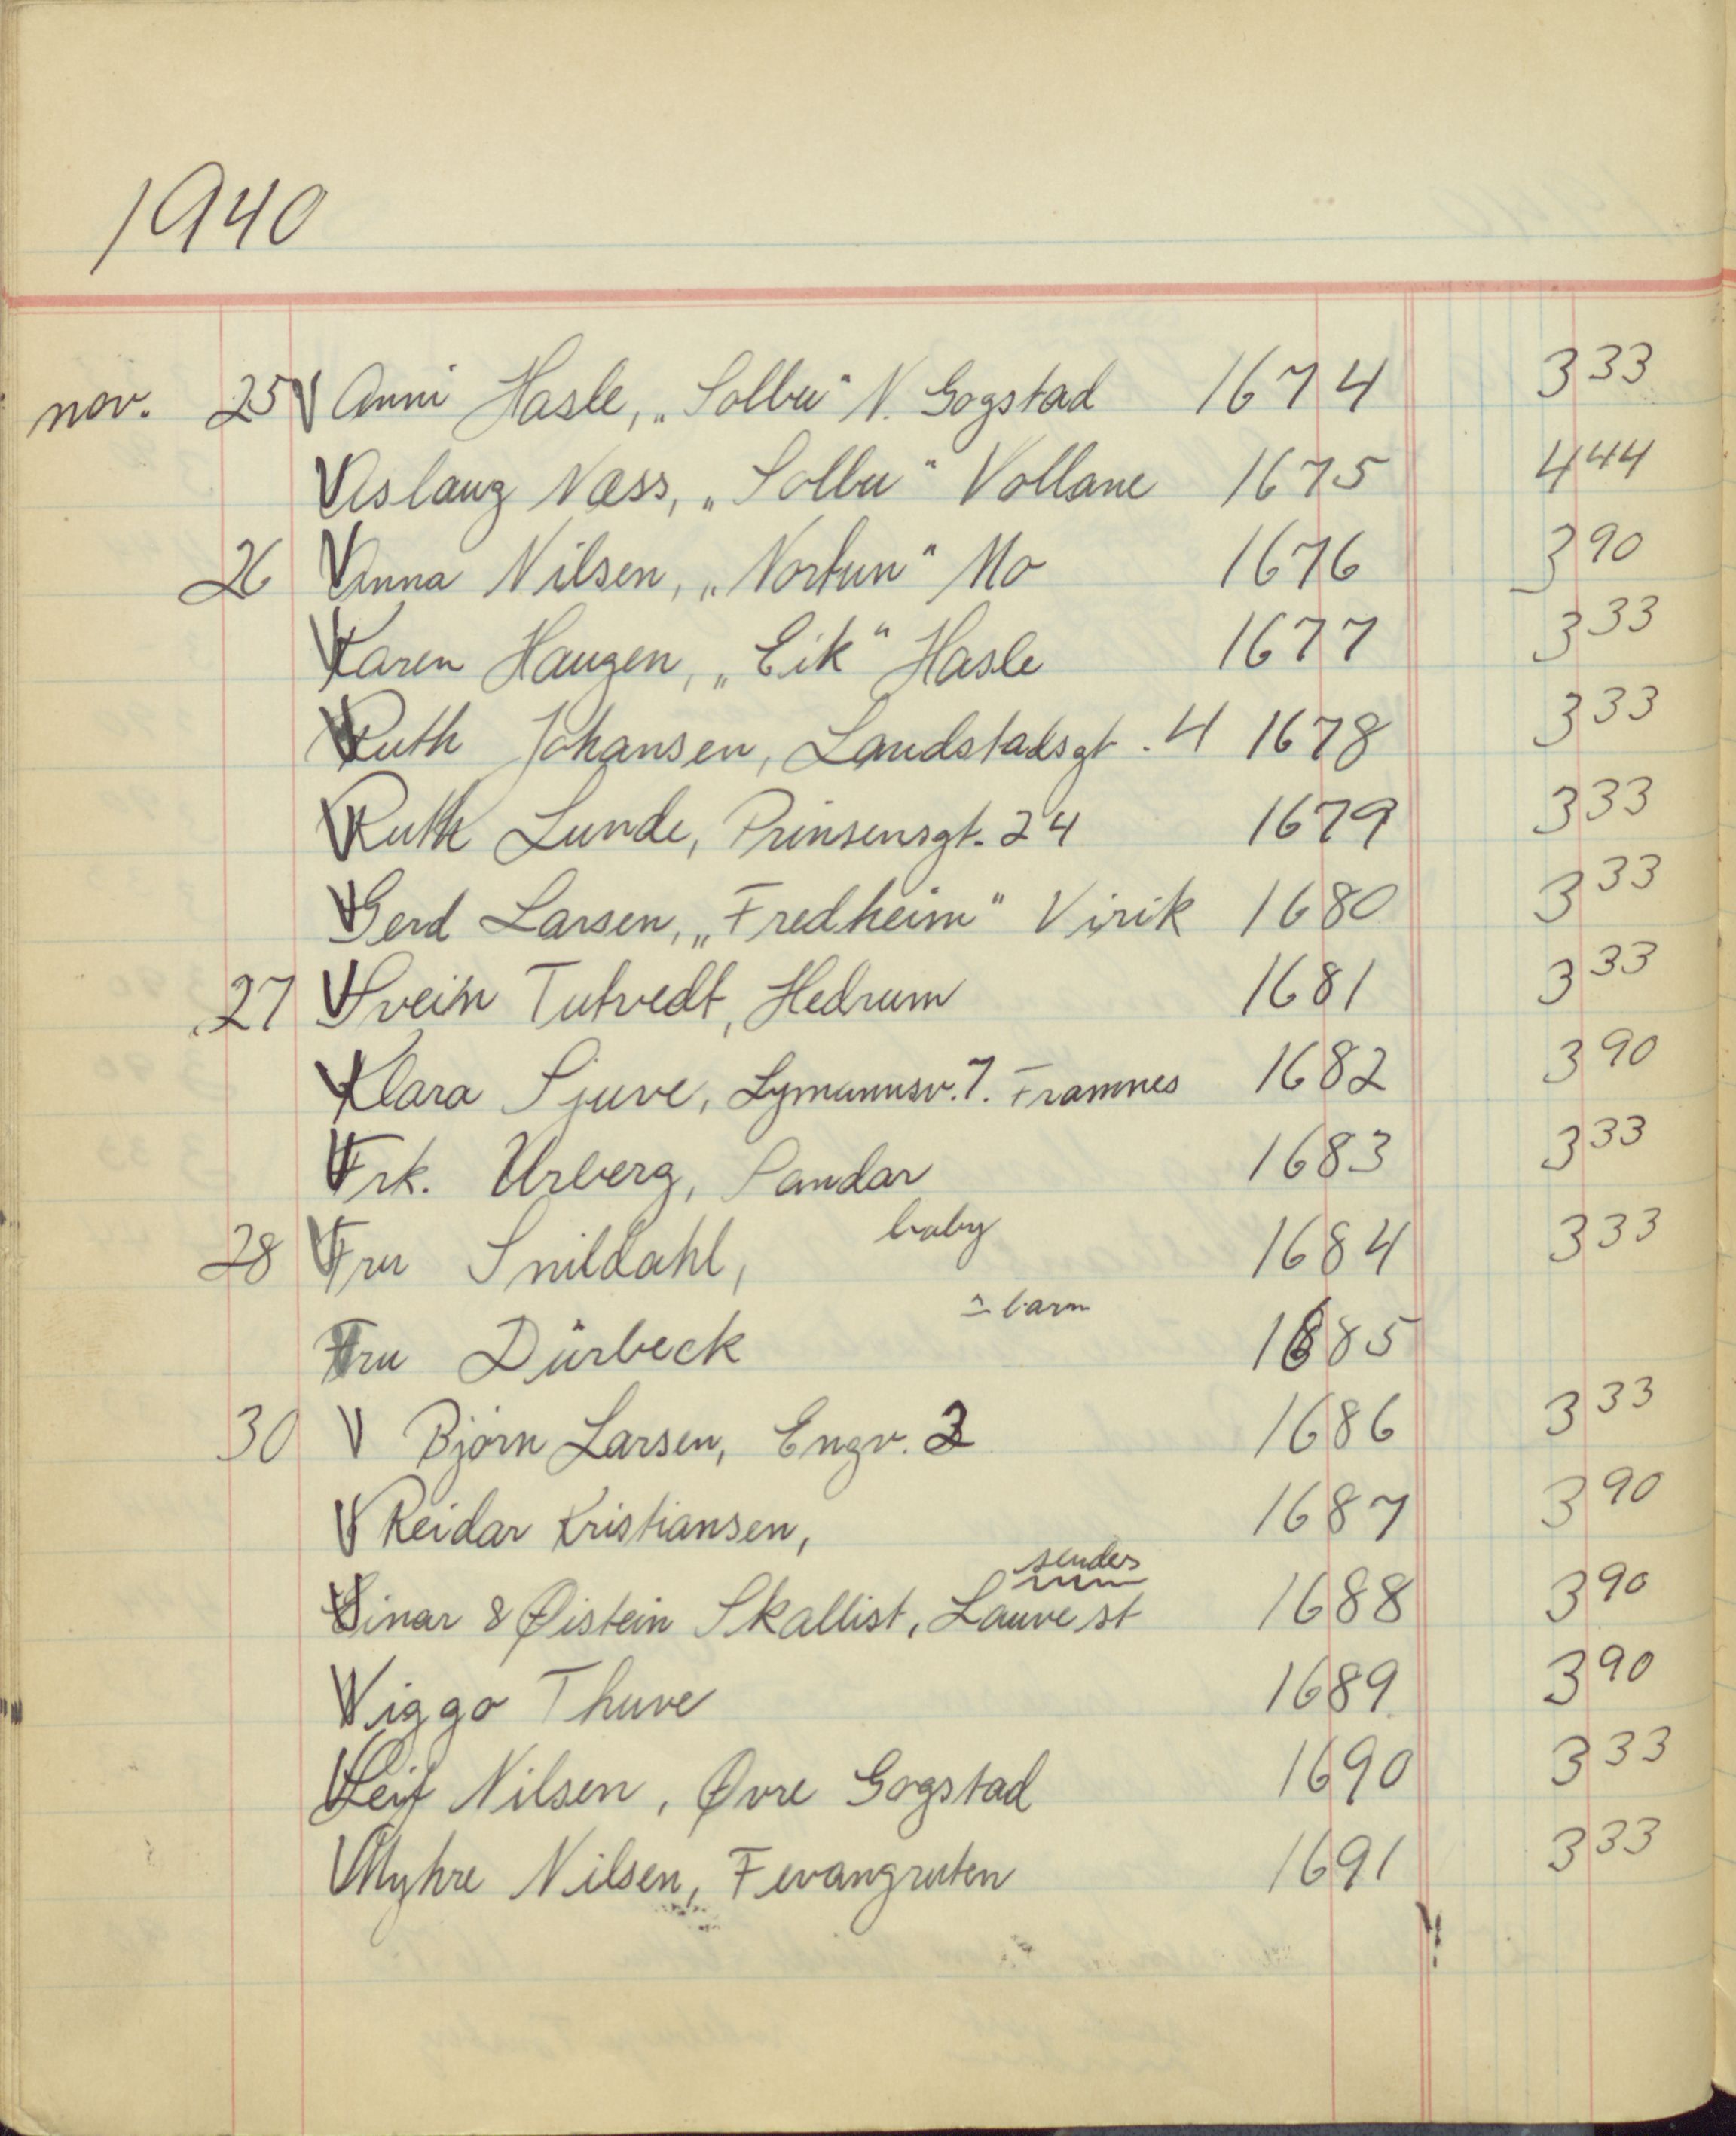 1940
nov. 25 V Anni Hasle, „Solbu" N. Gogstad 1674 3 33
V Aslaug Næss, „Solbu" Vollane 1675 4 44
26 V Anna Nilsen, „Nortun" Mo 1676 3 90
V Karen Haugen, „Eik" Hasle 1677 3 33
V Ruth Johansen, Landstadsgt. 4 1678 3 33
V Ruth Lunde, Prinsensgt. 24 1679 3 33
V Gerd Larsen, „Fredheim" Virik 1680 3 33
27 V Svein Tutvedt, Hedrum 1681 3 33
V Klara Sjuve, Lymannsv. 7. Framnes 1682 3 90
V Frk. Urberg, Sandar 1683 3 33
28 V Fru Snildahl, baby 1684 3 33
V Fru Dürbeck barn 1685
30 V Bjørn Larsen, Engv. 1686 3 33
V Reidar Kristiansen, 1687 3 90
sendes
V Einar & Øistein Skallist, Lauve st 1688 3 90
V Viggo Thuve 1689 3 90
V Leif Nilsen, Øvre Gogstad 1690 3 33
V Myhre Nilsen, Fevangruten 1691 3 33